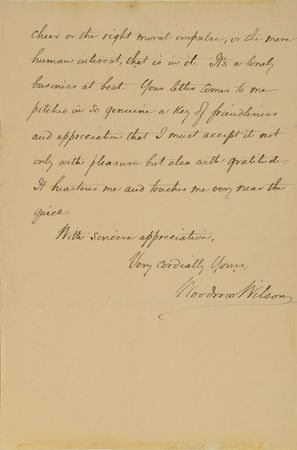 cheer or the right moral impulse, or the mere
human interest, that is in it. It's a lonely
business at best. Your letter comes to me
pitched in so genuine a key of friendliness
and appreciation that I must accept it not
only with pleasure but also with gratitude.
It heartens me and touches me very near the
quick.
With sincere appreciation,
Very cordially Yours,
Woodrow Wilson